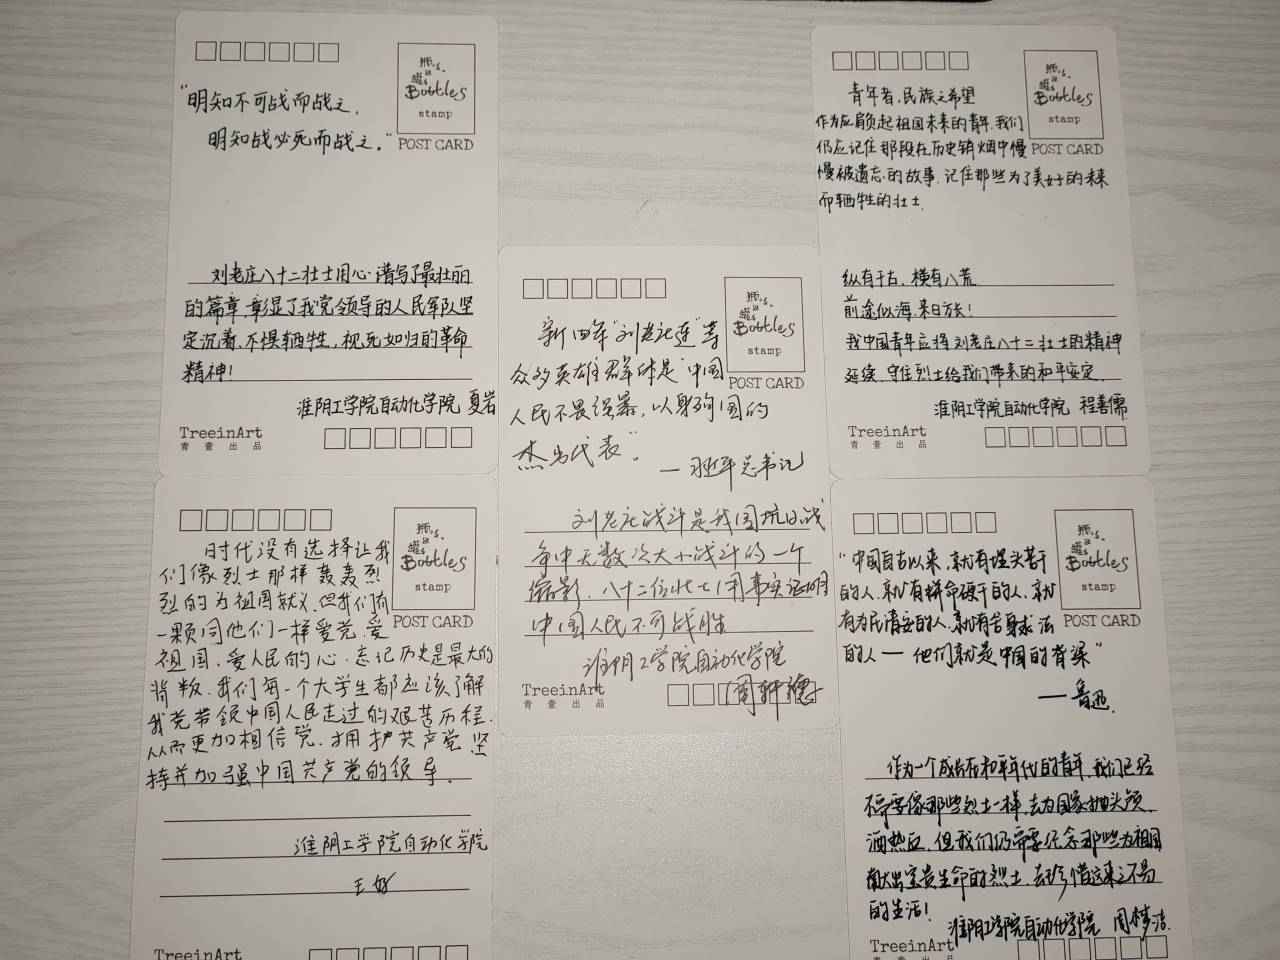 瓶
Bottles
stamp
POST CARD
"明知不可战而战之,
明知战必死而战之。"
刘老庄八十二壮士用心谱写了最壮丽
的篇章,彰显了我党领导的人民军队坚
定沉着、不惧牺牲,视死如归的革命
精神!
淮阴工学院自动化学院 夏岩
TreeinArt
青壹出品
Bottles
stamp
POST CARD
青年者,民族之希望
作为应肩负起祖国未来的青年,我们
仍应记住那段在历史硝烟中慢
慢被遗忘的故事,记住那些为了美好的未来
而牺牲的壮士.
纵有千古,横有八荒
前途似海,来日方长!
我中国青年应将刘老庄八十二壮士的精神
延续,守住烈士给我们带来的和平安定.
淮阴工学院自动化学院 程善儒
TreeinArt
青壹出品
Bottles
stamp
POST CARD
新四军"刘老庄连"等
众多英雄群体是"中国
人民不畏强暴,以身殉国的
杰出代表"
—习近平总书记
刘老庄战斗是我国抗日战
争中无数次大小战斗的一个
缩影,八十二位壮士用事实证明
中国人民不可战胜
淮阴工学院自动化学院
TreeinArt
青壹出品
Bottles
stamp
POST CARD
时代没有选择让我
们像烈士那样轰轰烈
烈的为祖国献义,但我们有
一颗同他们一样爱党、爱
祖国、爱人民的心.忘记历史是最大的
背叛,我们每一个大学生都应该了解
我党带领中国人民走过的艰苦历程.
从而更加相信党,拥护共产党,坚
持并加强中国共产党的领导.
淮阴工学院自动化学院
王好
TreeinArt
Bottles
stamp
POST CARD
"中国自古以来,就有埋头苦干
的人,就有拼命硬干的人,就
有为民请命的人,就有舍身求法
的人—他们就是中国的脊梁"
——鲁迅.
作为一个成长在和平年代的青年,我们已经
不需要像那些烈士一样,去为国家抛头颅,
洒热血,但我们仍需要纪念那些为祖国
献出宝贵生命的烈士,去珍惜这来之不易
的生活!
淮阴工学院自动化学院 周梦洁
TreeinArt